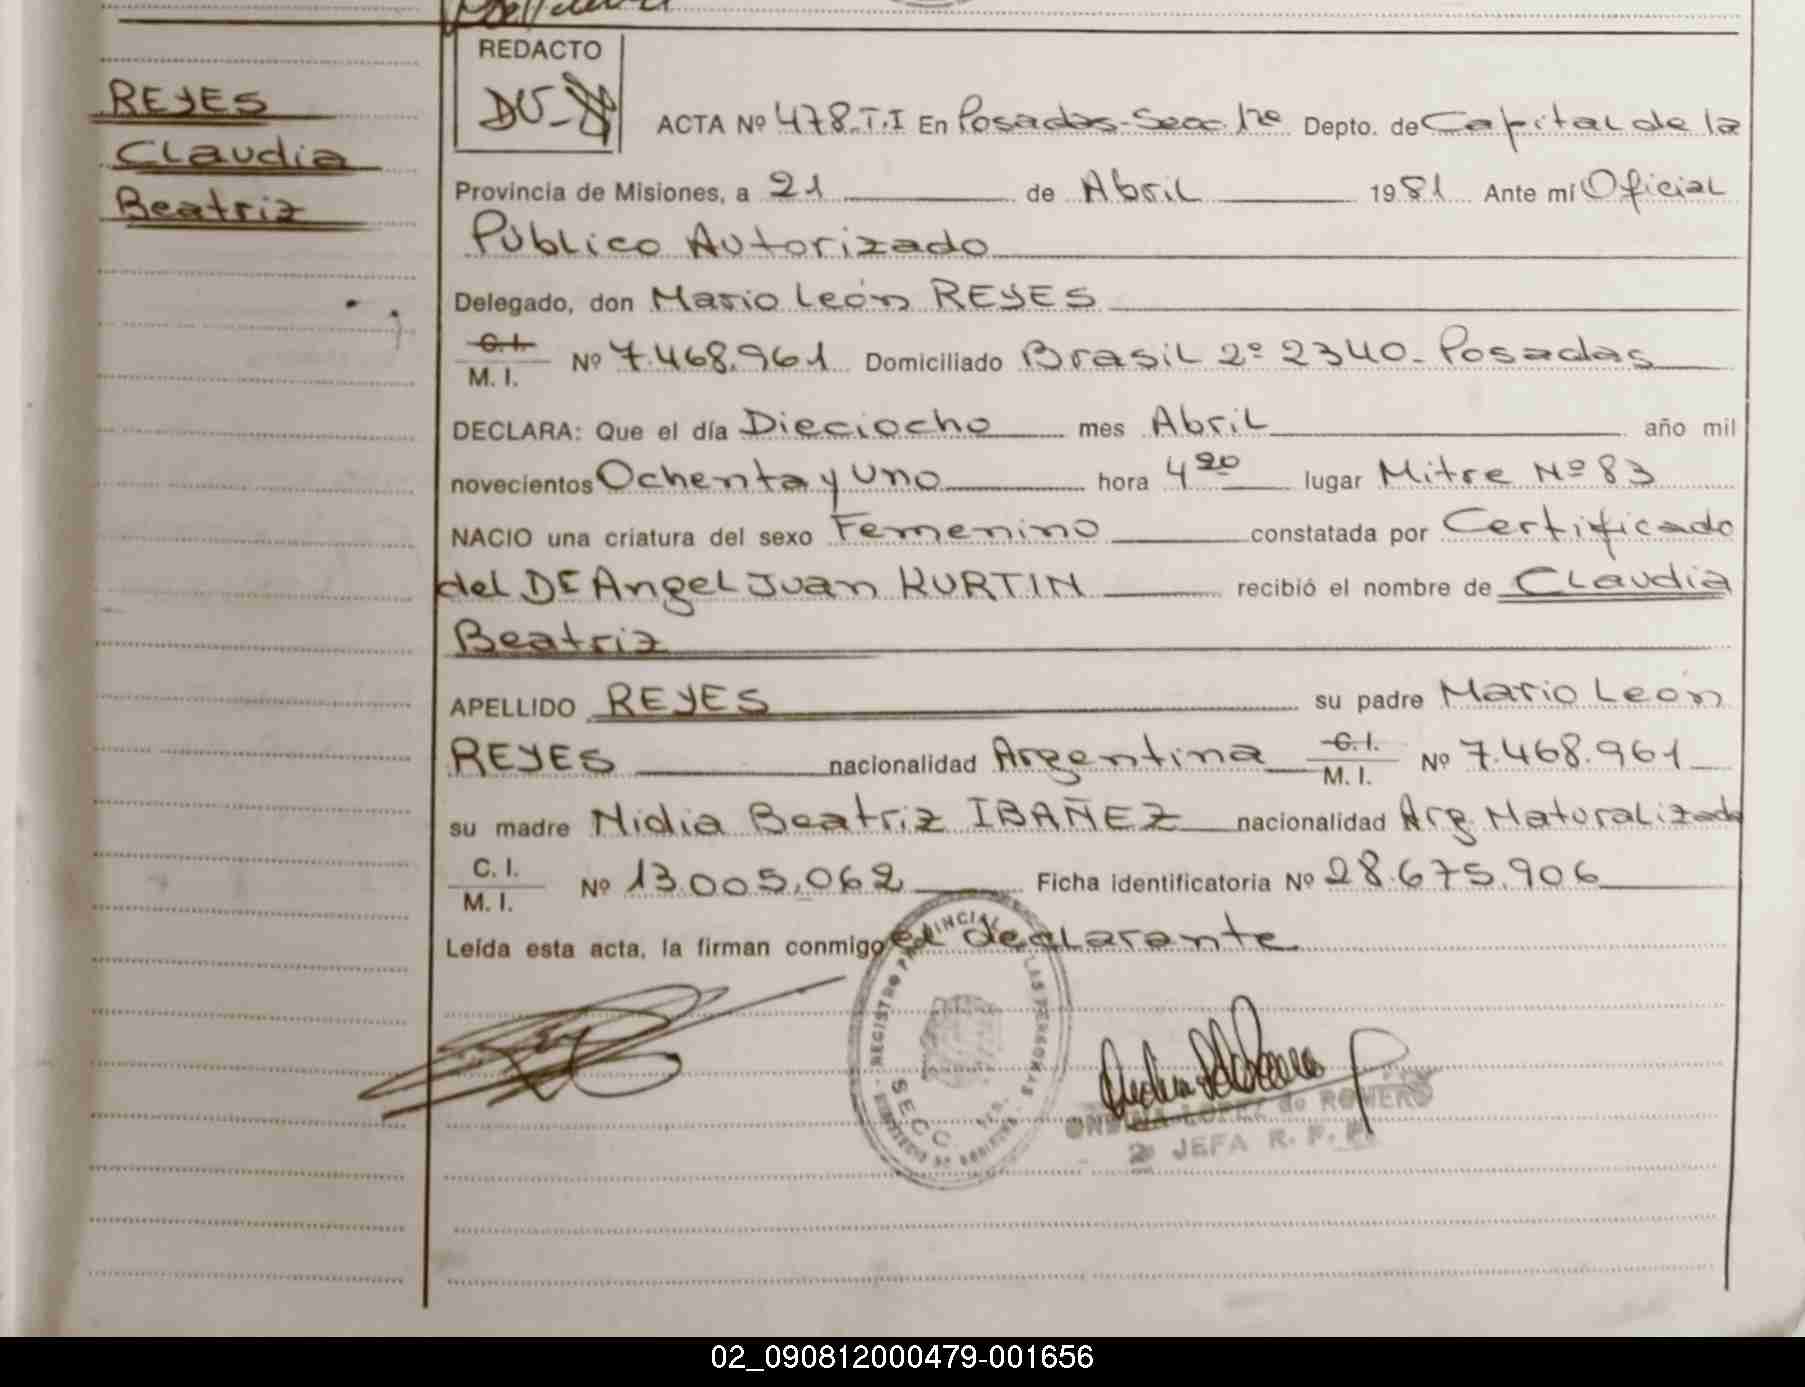 REDACTO
REYES
Claudia
Beatriz
ACTA Nº 478.T.I En Posadas-Secc. 1ra Depto. de Capital de la
Provincia de Misiones, a 21 de Abril 1981 Ante mí Oficial
Público Autorizado
Delegado, don Mario León REYES
C.I.
M. I. Nº 7.468.961 Domiciliado Brasil 2º 2340 - Posadas
DECLARA: Que el día Dieciocho mes Abril año mil
novecientos Ochenta y Uno hora 4 20 lugar Mitre Nº 83
NACIO una criatura del sexo Femenino constatada por Certificado
del Dr Angel Juan KURTIN recibió el nombre de Claudia
Beatriz
APELLIDO REYES su padre Mario León
REYES nacionalidad Argentina C.I. M. I. Nº 7.468.961
su madre Nidia Beatriz IBAÑEZ nacionalidad Arg. Naturalizada
C. I.
M. I. Nº 13.005.062 Ficha identificatoria Nº 28.675.906
Leída esta acta, la firman conmigo el declarante
REGISTRO PROVINCIAL DE LAS PERSONAS
SECC. 1ra.
ONDINA LOPEZ de ROMERO
2 JEFA R. P. P.
02_090812000479-001656